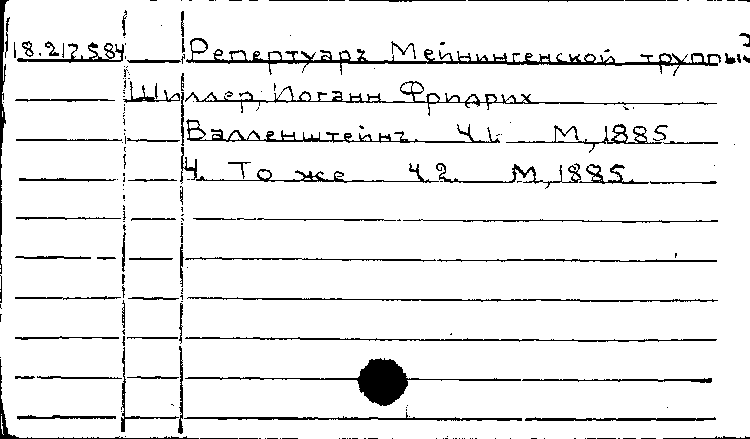 18.217.5.84 Репертуаръ Мейнингенской труппы 3
Шиллер, Иоганн Фридрих
Валленштейнъ. Ч.1. М., 1885.
4. То же Ч.2. М., 1885.